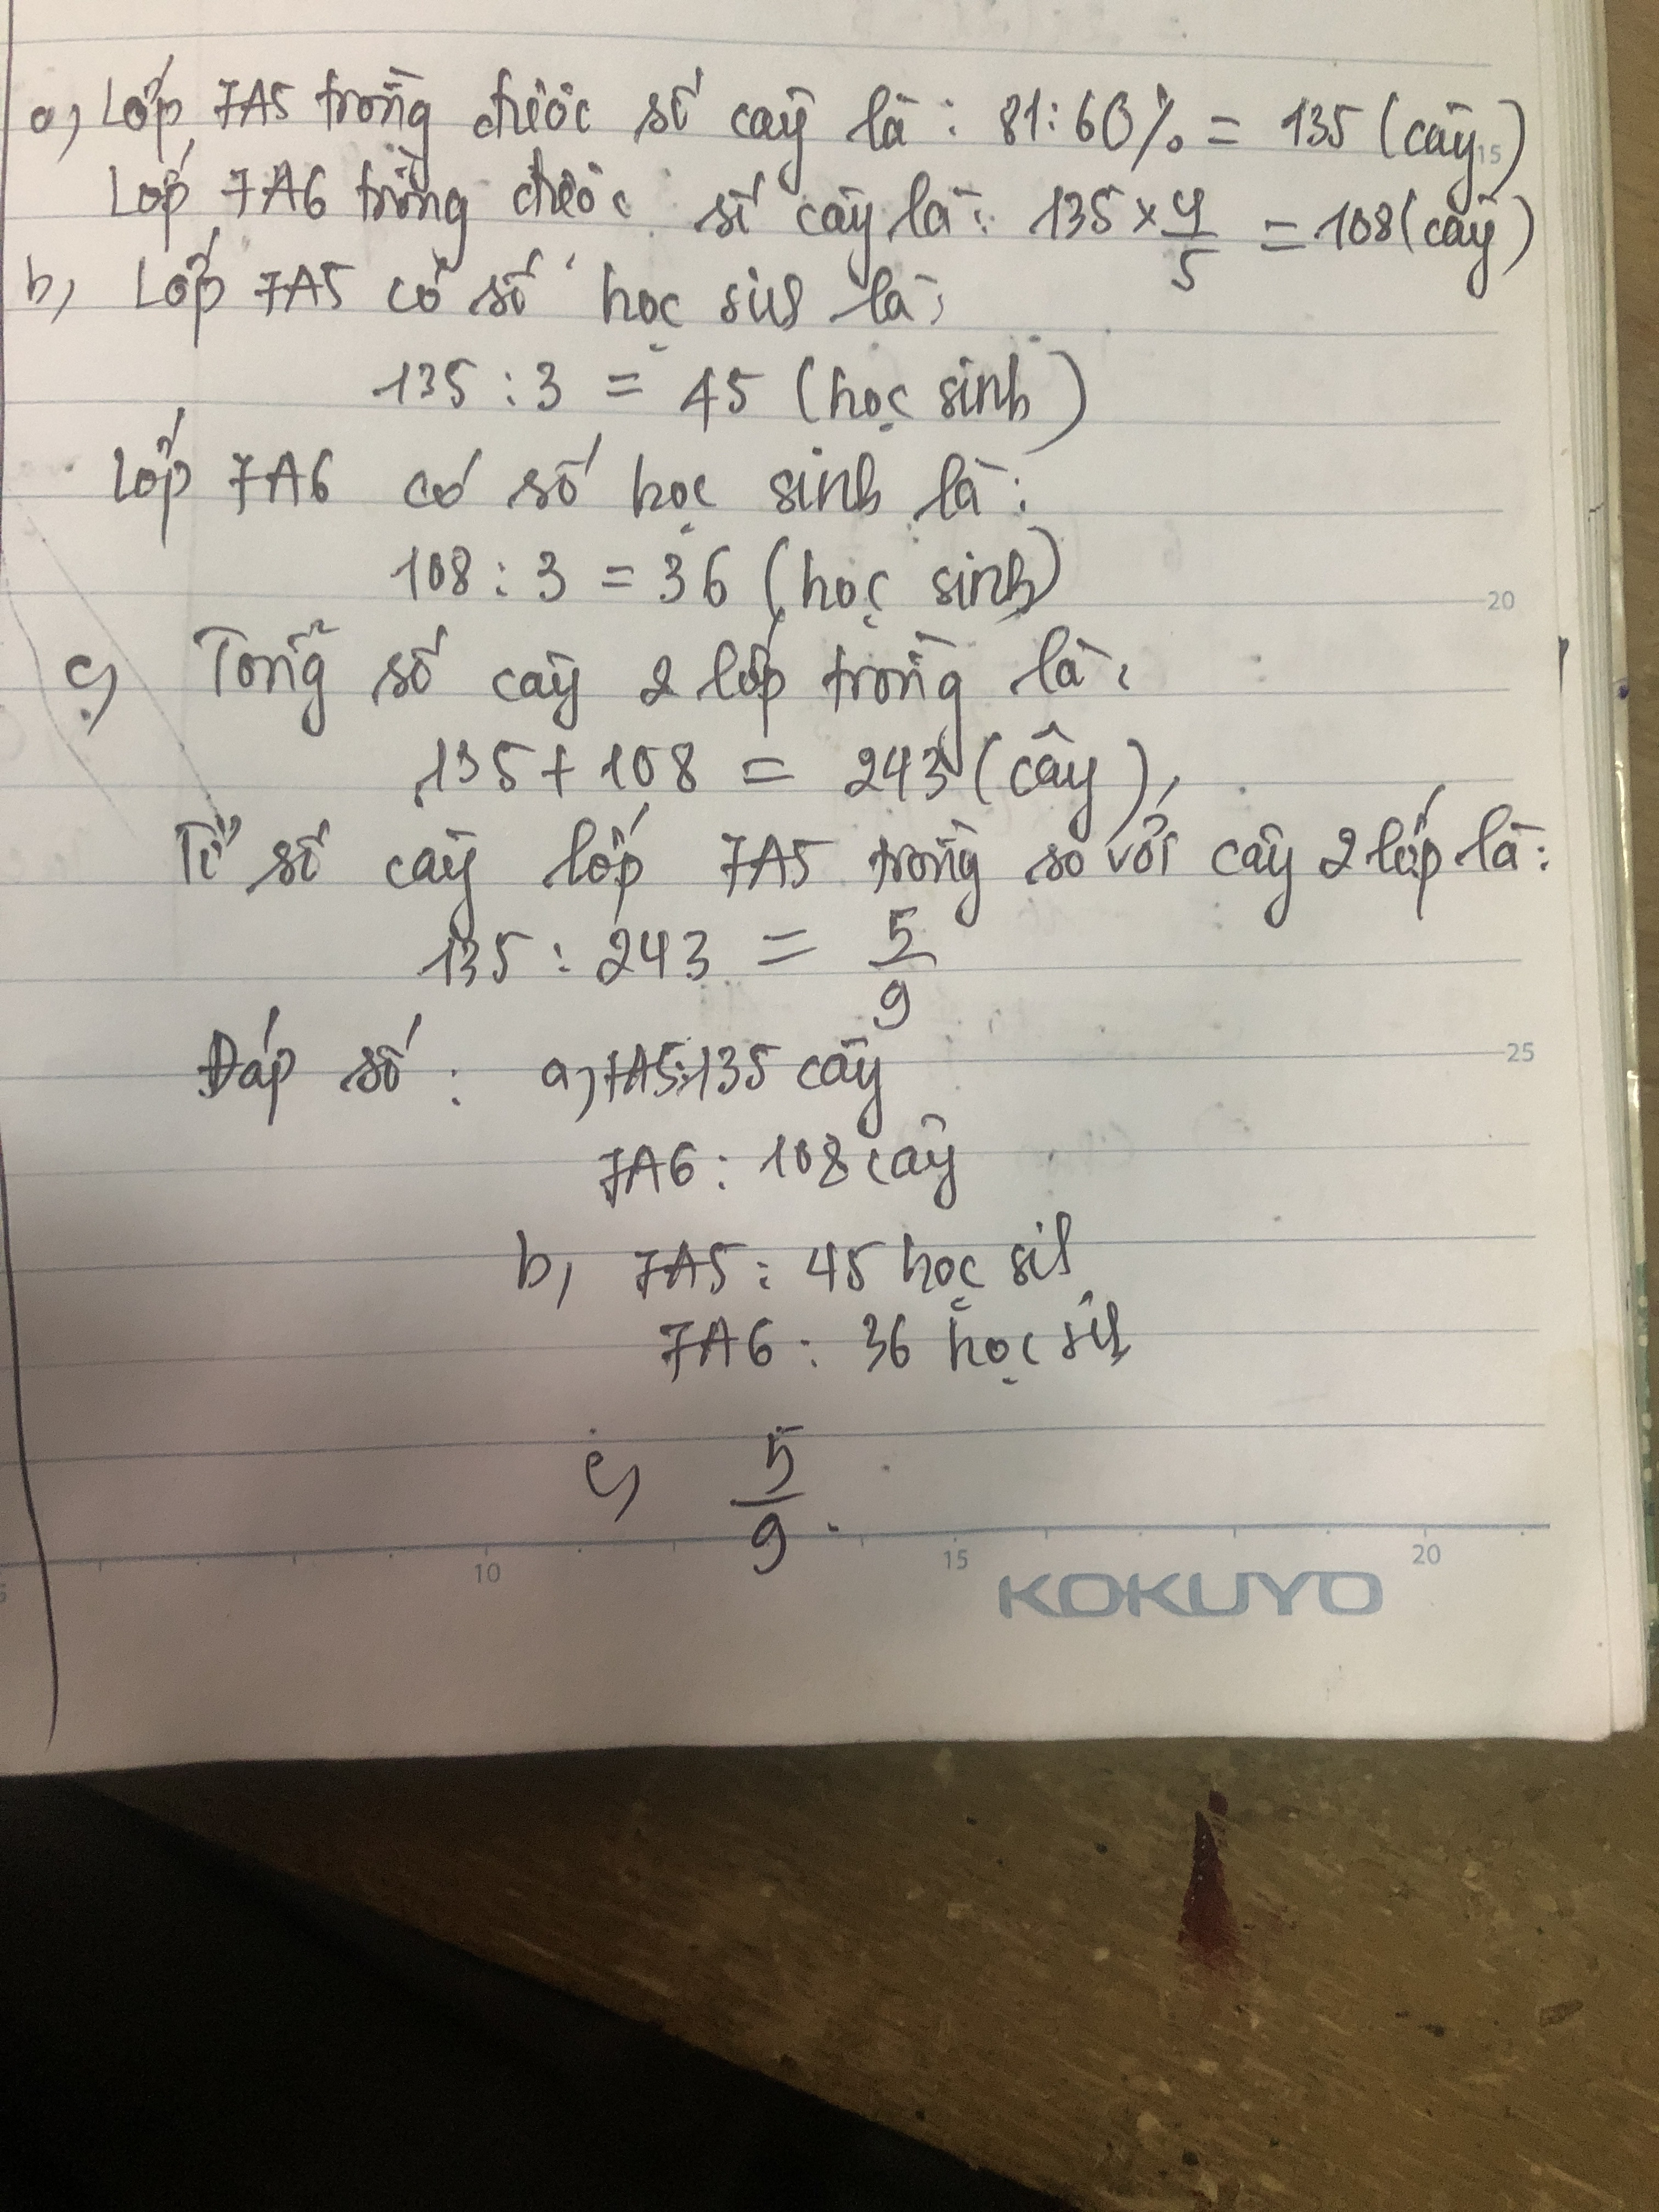 a, Lớp 7A5 trồng được số cây là: 81:60% = 135 (cây)
15
Lớp 7A6 trồng được số cây là: 135 × 4/5 = 108 (cây)
b, Lớp 7A5 có số học sinh là:
135 : 3 = 45 (học sinh)
Lớp 7A6 có số học sinh là:
108 : 3 = 36 (học sinh)
20
c, Tổng số cây 2 lớp trồng là:
135 + 108 = 243 (cây)
Tỉ số cây lớp 7A5 trồng so với cây 2 lớp là:
135 : 243 = 5/9
Đáp số: a, 7A5: 135 cây
25
7A6: 108 cây
b, 7A5: 45 học sinh
7A6: 36 học sinh
c, 5/9.
10 15 20
KOKUYO